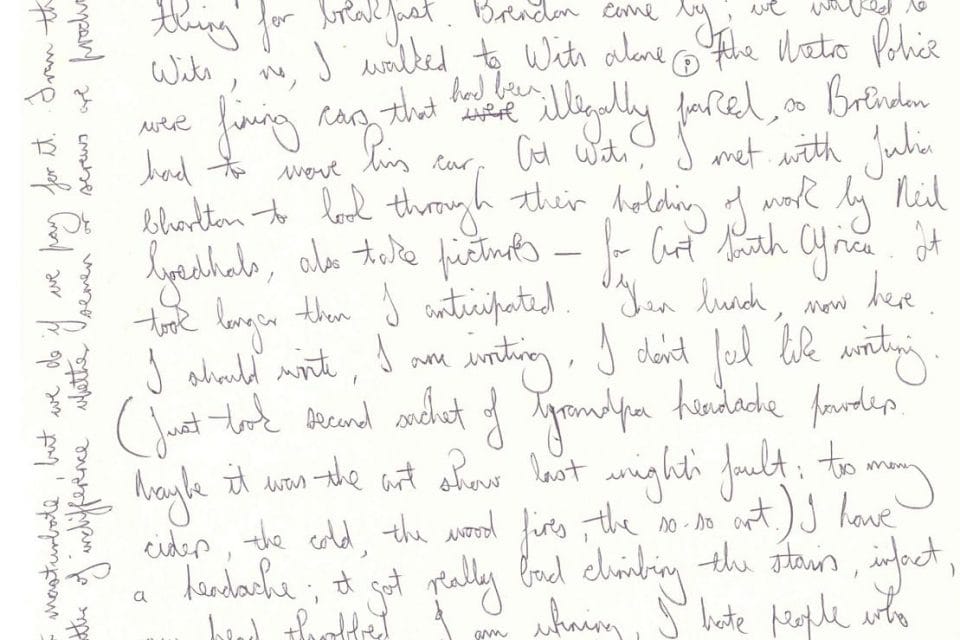 thing for breakfast. Brendon came by; we walked to
Wits, no, I walked to Wits alone (P) The Metro Police
were fining cars that had been were illegally parked, so Brendon
had to move his car. At Wits, I met with Julia
Charlton to look through their holding of work by Neil
Goedhals, also take pictures – for Art South Africa. It
took longer than I anticipated. Then lunch, now here.
I should write, I am writing, I don't feel like writing.
(Just took second sachet of Grandpa headache powders.
Maybe it was the art show last night's fault: too many
ciders, the cold, the wood fires, the so-so art.) I have
a headache; it got really bad climbing the stairs, infact,
my head throbbed. I am whining, I hate people who
masturbate, but we do if we pay for it. Iran
of indifference whether semen or serums